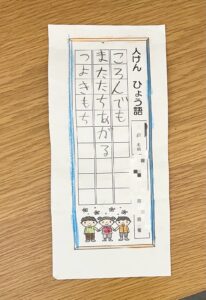 人けん ひょう語
ころんでも
またたちあがる
つよきもち